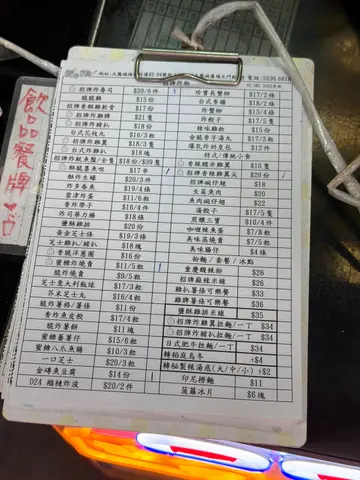 飲品餐牌
招牌炸物
招牌炸壽司 $20/6件
脆脆雞 $15份
招牌香酥雞軟骨 $17份
招牌炸雞脾 $21隻
招牌炸豬扒 $18份
台式花枝丸 $17/3粒
台式炸雞翼 $18隻
台式炸雞扒 $18塊
招牌炸魷魚鬚/全隻 $18份/$39隻
$17串
酥炸生蠔 $20/3件
炸多春魚 $19/4件
紫津炸蛋 $11/6件
香炸帶子 $16/4件
炸司華力腸 $18條
鹽酥雞排 $20份
黃金芝士條 $19/3條
芝士雞扒/豬扒 $18塊
香脆洋蔥圈 $16份
蜜糖炸燒賣 $11/5粒
脆炸燒賣 $9/5粒
芝士意大利飯球 $17/3粒
芥末芝士丸 $16/3粒
脆炸薯格/薯條 $11份
香炸魚皮餃 $17/4粒
脆炸薯餅 $11塊
蜜糖蕃薯仔 $15/6粒
蜜糖八爪魚腸 $10/3粒
一口芝士 $20/3粒
金磚魚豆腐 $14份
D24 榴槤炸波 $20/2件
珍寶長蟹柳 $17/2條
台式香腸 $18/2條
炸蟹柳 $13/4條
炸餃子 $17/5隻
辣味雞粒 $15份
金脆香芋湯丸 $17/3粒
爆乳炸奶皇包 $12/4件
特式/傳統小食
$10隻
$20份
招牌碗仔翅 $18
生菜魚肉 $20
魚肉碗仔翅 $22
湯餃子 $17/5隻
煎釀三寶 $10/4件
咖哩辣魚蛋 $17/8粒
美味蒸燒賣 $17/5粒
美味腸仔 $14/4條
粉麵/套餐/冰點
重慶酸辣粉 $26
招牌麻辣米線 $26
雞扒薯條可樂餐 $33
雞脾薯條可樂餐 $36
鹽酥雞排米線 $35
招牌炸雞翼拉麵/一丁 $34
招牌炸豬扒拉麵/一丁 $34
日式肥牛拉麵/一丁 $34
轉稻庭烏冬 +$4
轉秘製辣湯底(大/中/小) +$2
印尼撈麵 $11
菠蘿冰片 $6塊